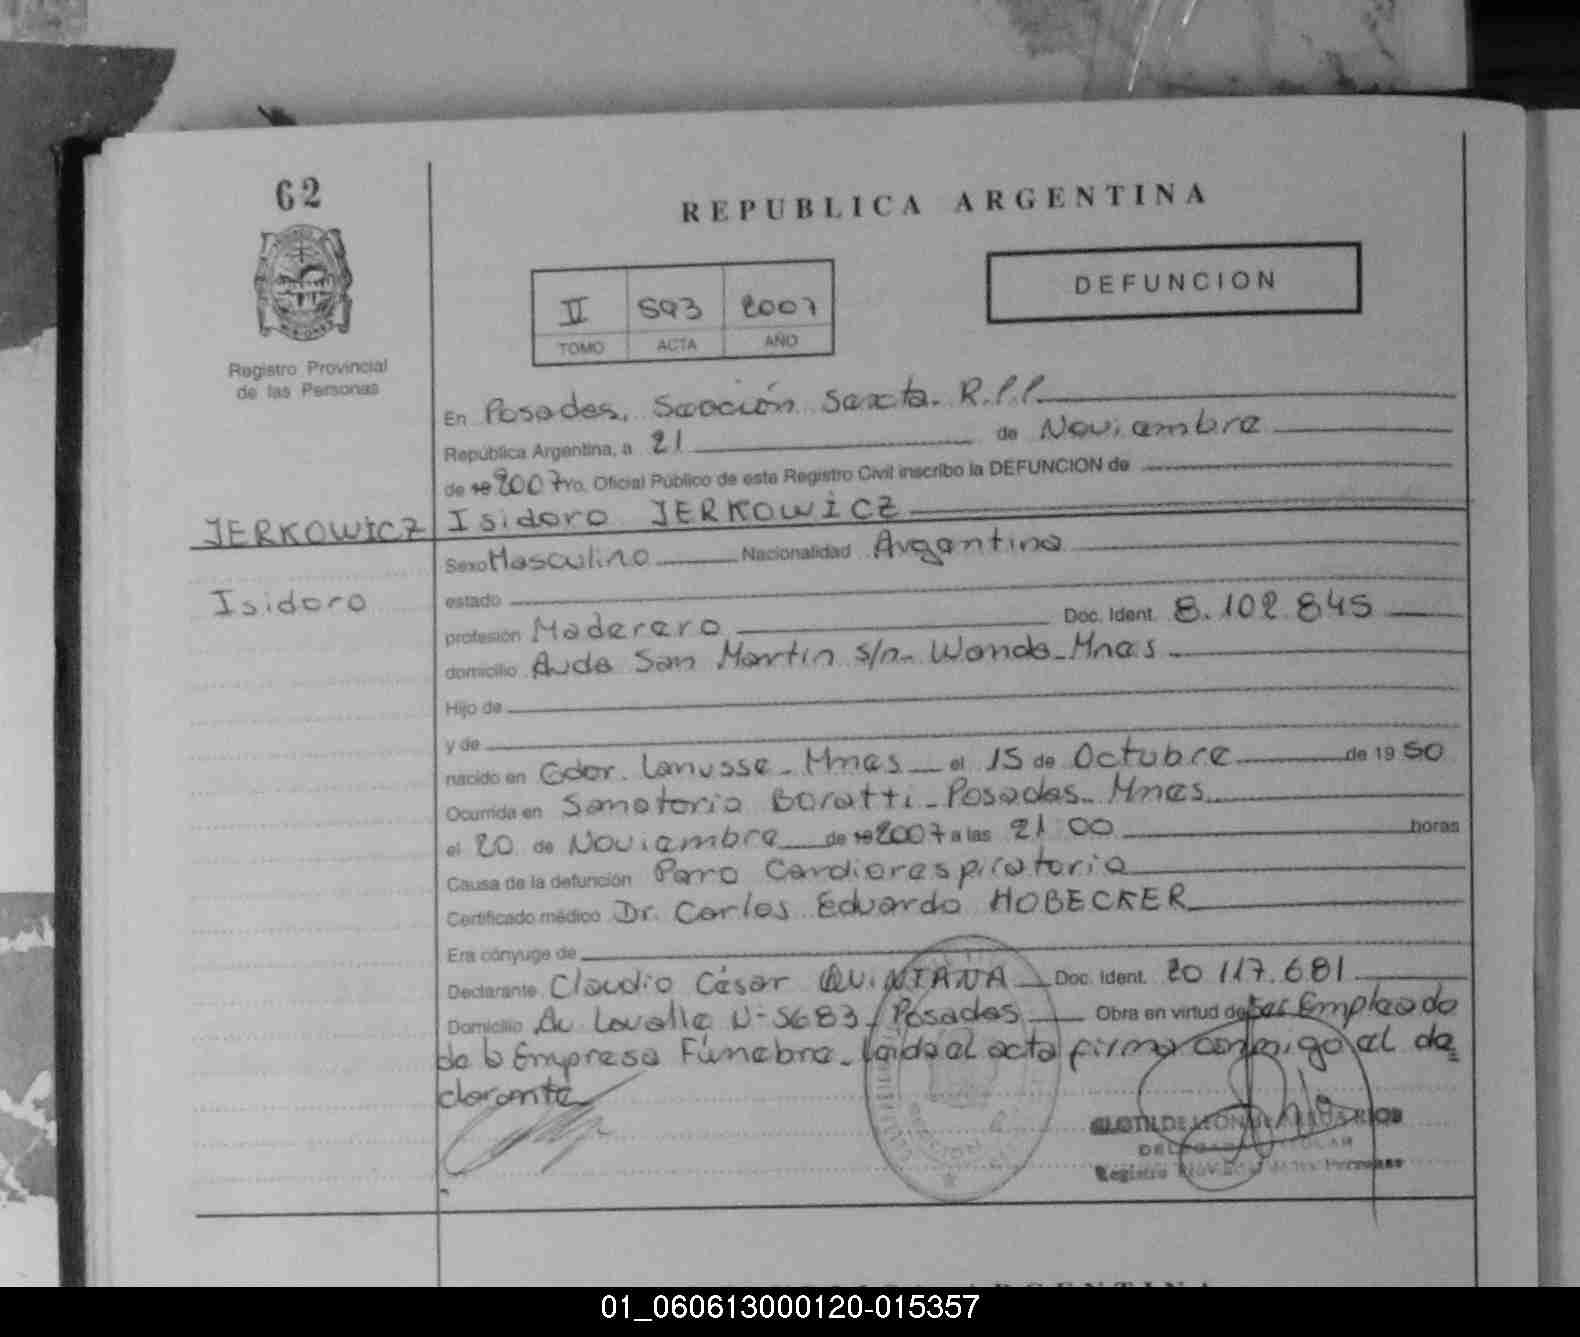 62
REPUBLICA ARGENTINA
DEFUNCION
II 593 2007
TOMO ACTA AÑO
Registro Provincial
de las Personas
En Posadas, Sección Sexta. R.P.P.
República Argentina, a 21 de Noviembre
de 19 2007 Yo. Oficial Público de este Registro Civil inscribo la DEFUNCION de
JERKOWICZ Isidoro JERKOWICZ
Sexo Masculino Nacionalidad Argentina
Isidoro
estado
profesión Maderero Doc. Ident. 8.102.845
domicilio Avda San Martin s/n - Wanda - Mnes
Hijo de
y de
nacido en Gdor. Lanusse - Mnes el 15 de Octubre de 1950
Ocurrida en Sanatorio Boratti - Posadas - Mnes
el 20 de Noviembre de 19 2007 a las 21 00 horas
Causa de la defunción Paro Cardiorespiratorio
Certificado médico Dr. Carlos Eduardo HOBECKER
Era cónyuge de
Declarante Claudio César QUINTANA Doc. Ident. 20.117.681
Domicilio Av Lavalle N-5683 - Posadas Obra en virtud de Ser Empleado
de la Empresa Fúnebre - Leida el acta firma conmigo el de=
clarante
CLOTILDE LEON
Registro
01_060613000120-015357